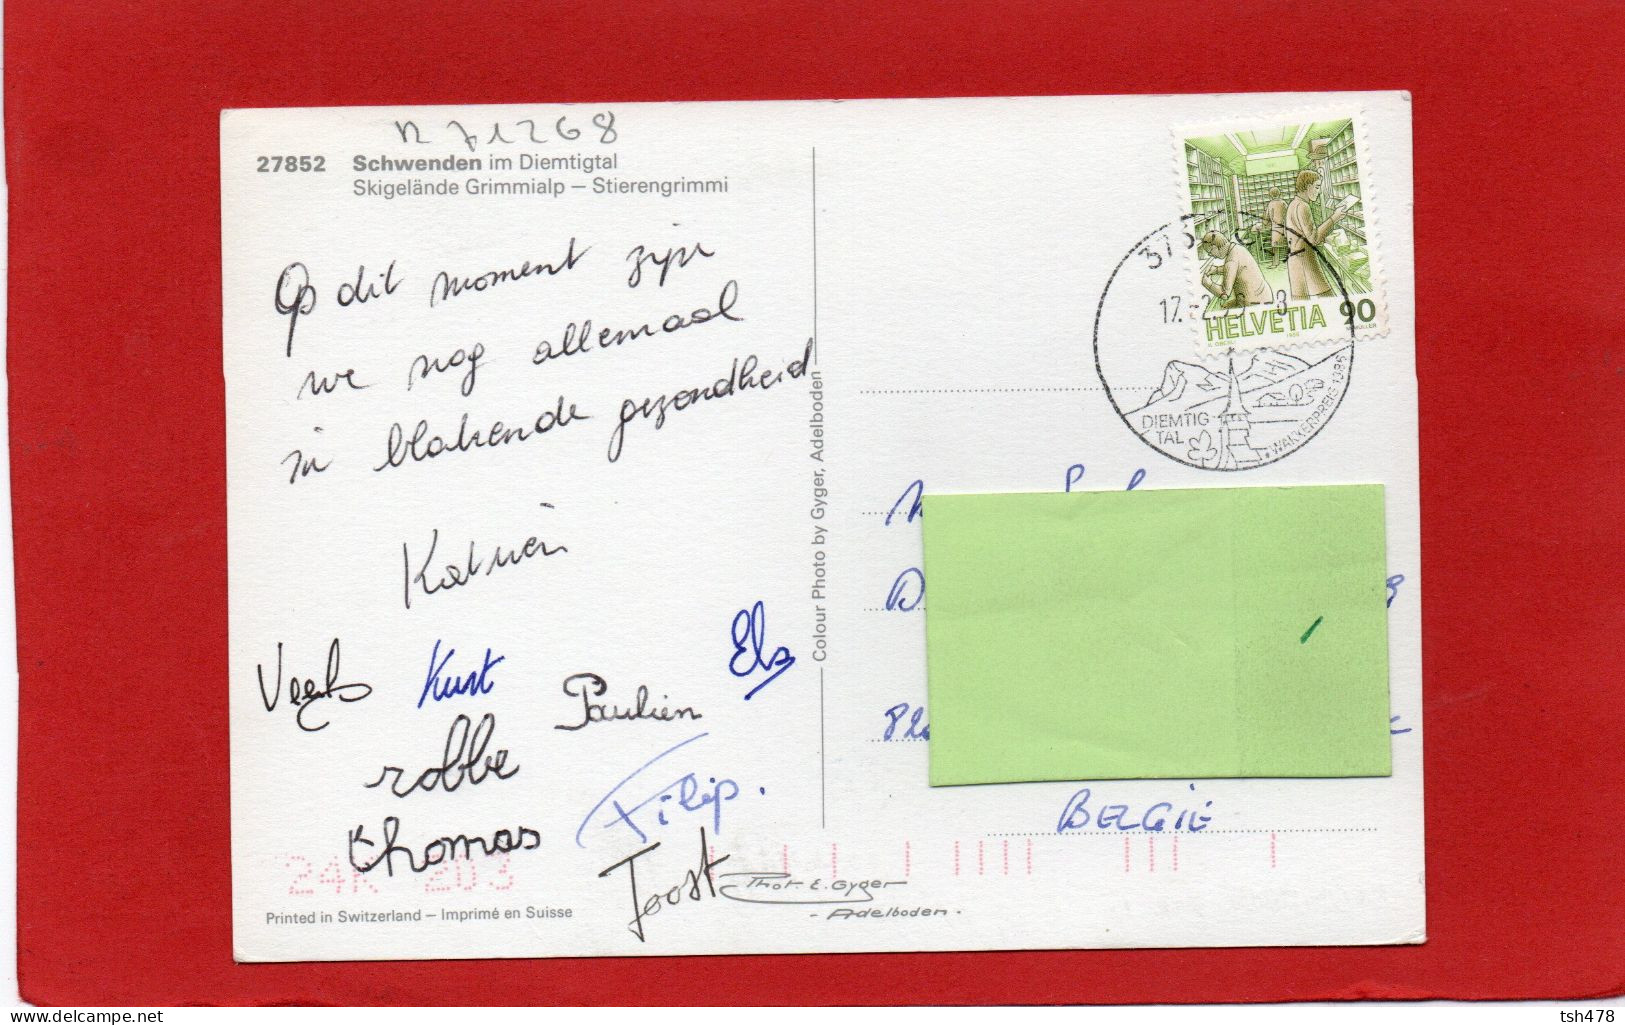 n 71268
27852 Schwenden im Diemtigtal
Skigelände Grimmialp – Stierengrimmi
Op dit moment zijn
we nog allemaal
in blakende gezondheid
Katrien
Kurt
Els
Paulien
robbe
Filip.
thomas
Joost
24K 203
Printed in Switzerland – Imprimé en Suisse
Colour Photo by Gyger, Adelboden
Phot. E. Gyger
- Adelboden.
HELVETIA 90
17.-2.
-8
DIEMTIG
TAL
WAKKERPREIS 1986
BELGIË
Delcampe.net
tsh478